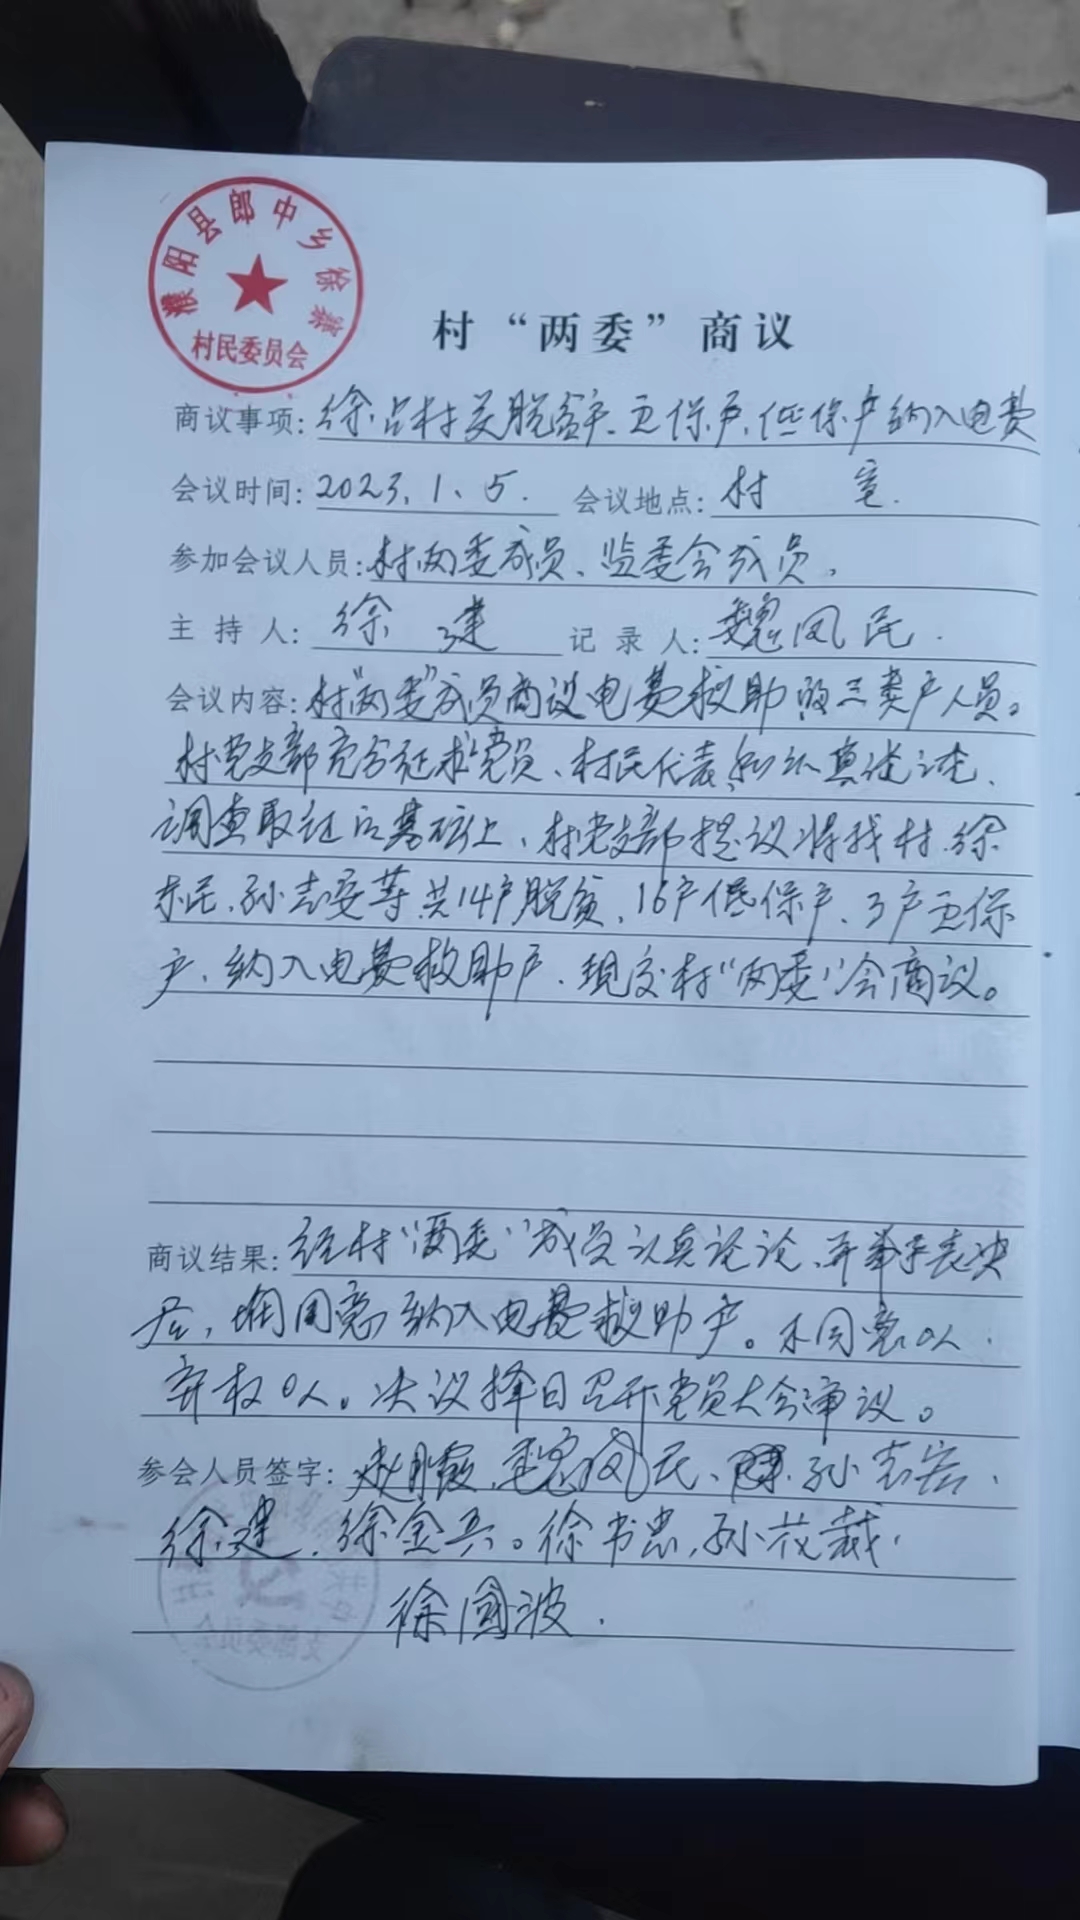 濮阳县郎中乡徐寨
村民委员会
村“两委”商议
商议事项:徐占村关脱贫户、五保户、低保户纳入电费
会议时间:2023.1.5. 会议地点:村 室.
参加会议人员:村两委成员、监委会成员,
主持人:徐 建 记录人:魏凤民.
会议内容:村“两委”成员商议电费救助的三类户人员。
村党支部充分征求党员、村民代表和认真
调查取证后基础上、村党支部提议将我村徐
东民、孙志安等共14户脱贫、16户低保户、3户五保
户、纳入电费救助户、现交村“两委”会商议。
商议结果:经村“两委”成员认真讨论、并举手表决
后,均同意纳入电费救助户。不同意0人.
弃权0人。决议择日召开党员大会审议。
参会人员签字:魏凤民、孙志安、
徐建、徐金兵。徐书忠,孙花裁.
徐国波.